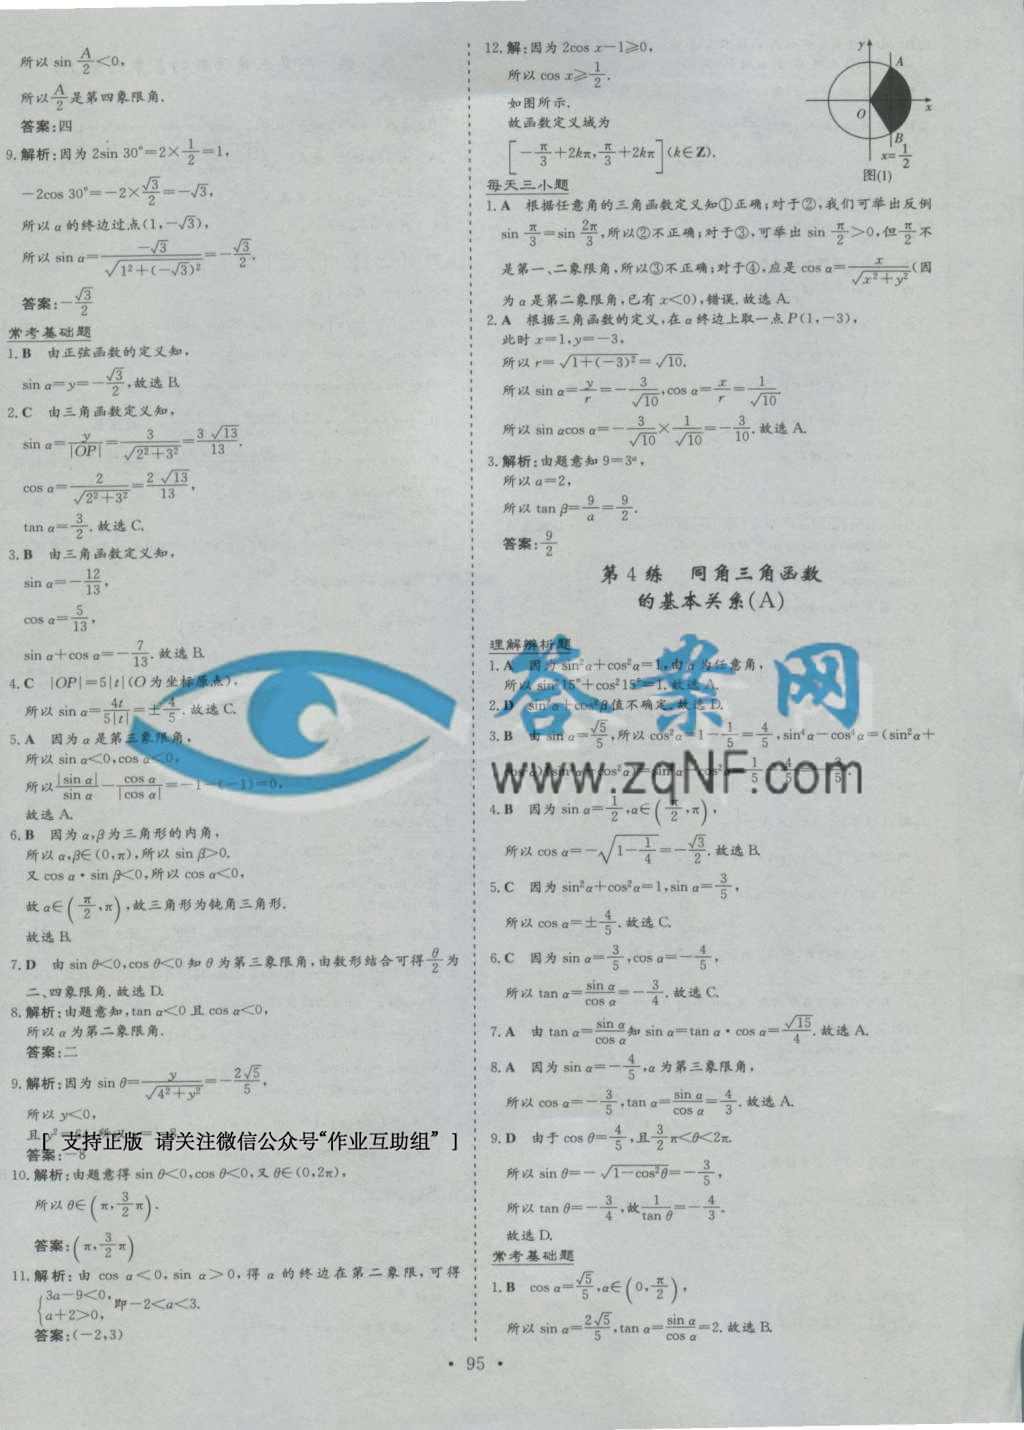 所以 sin A/2<0,
所以 A/2 是第四象限角.
答案:四
9. 解析:因为 2sin 30°=2×1/2=1,
-2cos 30°=-2×√3/2=-√3,
所以 α 的终边过点(1,-√3),
所以 sin α=-√3/√(1²+(-√3)²)=-√3/2.
答案:-√3/2
常考基础题
1. B 由正弦函数的定义知,
sin α=y=-√3/2,故选 B.
2. C 由三角函数定义知,
sin α=y/|OP|=3/√(2²+3²)=3√13/13,
cos α=2/√(2²+3²)=2√13/13,
tan α=3/2. 故选 C.
3. B 由三角函数定义知,
sin α=-12/13,
cos α=5/13,
sin α+cos α=-7/13. 故选 B.
4. C |OP|=5|t|(O 为坐标原点),
所以 sin α=4t/5|t|=±4/5. 故选 C.
5. A 因为 α 是第三象限角,
所以 sin α<0,cos α<0,
所以 |sin α|/sin α-cos α/|cos α|=-1-(-1)=0.
故选 A.
6. B 因为 α,β 为三角形的内角,
所以 α,β∈(0,π),所以 sin β>0.
又 cos α·sin β<0,所以 cos α<0,
故 α∈(π/2,π),故三角形为钝角三角形.
故选 B.
7. D 由 sin θ<0,cos θ<0 知 θ 为第三象限角,由数形结合可得 θ/2 为
二、四象限角. 故选 D.
8. 解析:由题意知,tan α<0 且 cos α<0,
所以 α 为第二象限角.
答案:二
9. 解析:因为 sin θ=y/√(4²+y²)=-2√5/5,
所以 y<0,
且 y²=6
[ 支持正版 请关注微信公众号“作业互助组” ]
答案:-8
10. 解析:由题意得 sin θ<0,cos θ<0,又 θ∈(0,2π),
所以 θ∈(π,3/2π).
答案:(π,3/2π)
11. 解析:由 cos α<0,sin α>0,得 α 的终边在第二象限,可得
{3a-9<0, a+2>0, 即-2<a<3.
答案:(-2,3)
12. 解:因为 2cos x-1≥0,
所以 cos x≥1/2.
如图所示.
故函数定义域为
[-π/3+2kπ,π/3+2kπ](k∈Z).
y
A
O
x
B
x=1/2
图(1)
每天三小题
1. A 根据任意角的三角函数定义知①正确;对于②,我们可举出反例
sin π/3=sin 2π/3,所以②不正确;对于③,可举出 sin π/2>0,但 π/2 不
是第一、二象限角,所以③不正确;对于④,应是 cos α=x/√(x²+y²)(因
为 α 是第二象限角,已有 x<0),错误. 故选 A.
2. A 根据三角函数的定义,在 α 终边上取一点 P(1,-3),
此时 x=1,y=-3,
所以 r=√(1+(-3)²)=√10.
所以 sin α=y/r=-3/√10,cos α=x/r=1/√10.
所以 sin αcos α=-3/√10×1/√10=-3/10. 故选 A.
3. 解析:由题意知 9=3ᵃ,
所以 a=2,
所以 tan β=9/a=9/2.
答案:9/2
第 4 练 同角三角函数
的基本关系(A)
理解辨析题
1. A 因为 sin²α+cos²α=1,由 α 为任意角,
所以 sin²15°+cos²15°=1. 故选 A.
2. D sin²α+cos²β 值不确定. 故选 D.
3. B 由 sin α=√5/5,所以 cos²α=1-1/5=4/5,sin⁴α-cos⁴α=(sin²α+
cos²α)(sin²α-cos²α)=sin²α-cos²α=1/5-4/5=-3/5.
答案网
www.zqNF.com
4. B 因为 sin α=1/2,α∈(π/2,π),
所以 cos α=-√(1-1/4)=-√3/2. 故选 B.
5. C 因为 sin²α+cos²α=1,sin α=3/5,
所以 cos α=±4/5. 故选 C.
6. C 因为 sin α=3/5,cos α=-4/5,
所以 tan α=sin α/cos α=-3/4. 故选 C.
7. A 由 tan α=sin α/cos α 知 sin α=tan α·cos α=√15/4. 故选 A.
8. A 因为 sin α=-4/5,α 为第三象限角,
所以 cos α=-3/5,tan α=sin α/cos α=4/3. 故选 A.
9. D 由于 cos θ=4/5,且 3/2π<θ<2π.
所以 sin θ=-√(1-cos²θ)=-3/5,
所以 tan θ=-3/4,故 1/tan θ=-4/3.
故选 D.
常考基础题
1. B cos α=√5/5,α∈(0,π/2),
所以 sin α=2√5/5,tan α=sin α/cos α=2. 故选 B.
• 95 •